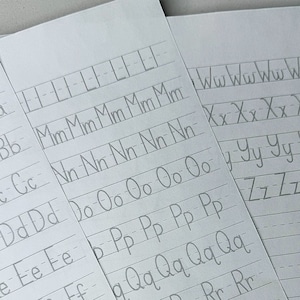 a
Bb
Cc
Dd Dd
Ee Ee
Ll Ll Ll
Mm Mm Mm Mm Mm
Nn Nn Nn Nn Nn
Oo Oo Oo Oo Oo
Pp Pp Pp Pp
Qq Qq Qq Qq
Rr Rr
Ww Ww Ww W
Xx Xx Xx X
y Yy Yy Yy
Zz Zz